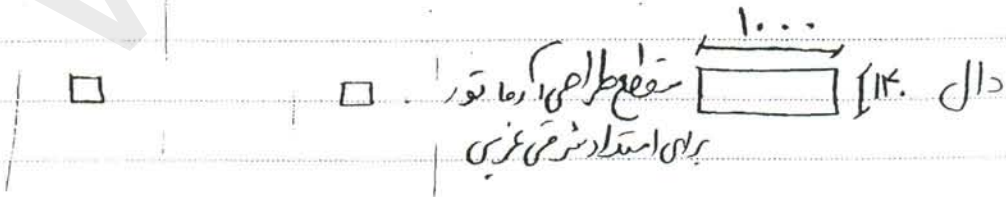 ۱۰۰۰
دال ۱۴۰ مقطع طراحی آرماتور
برای امتداد شرقی غربی